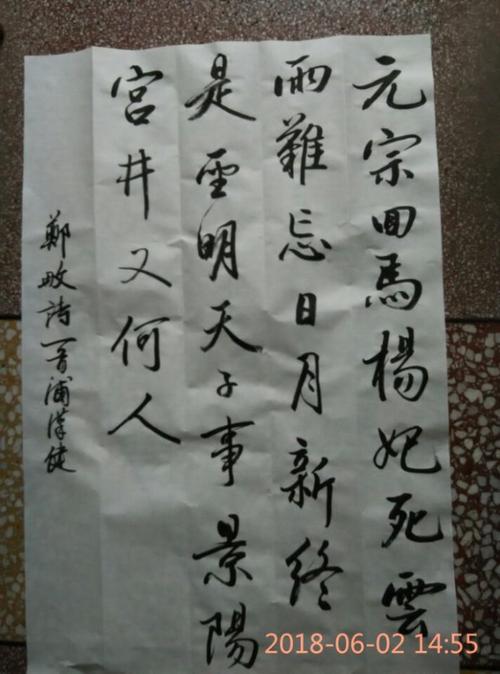 元宗回馬楊妃死雲
雨難忘日月新終
是聖明天子事景陽
宮井又何人
鄭畋詩一首浦漢健
2018-06-02 14:55